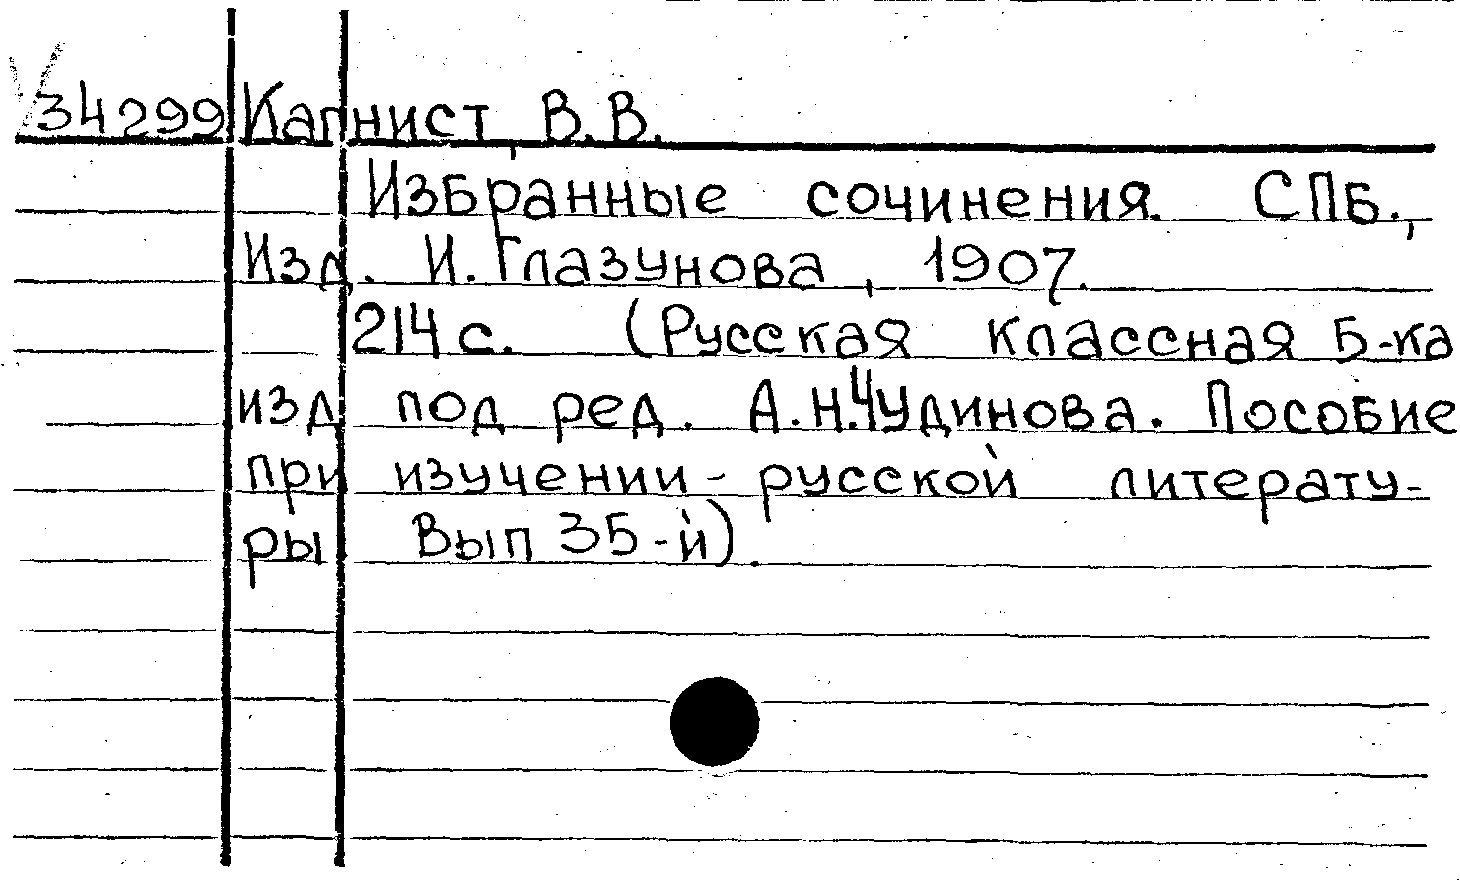 34299 Капнист, В.В.
Избранные сочинения. СПБ.,
Изд. И. Глазунова, 1907.
214 с. (Русская классная Б-ка
изд под ред. А.Н.Чудинова. Пособие
при изучении - русской литерату-
ры Вып 35-й).